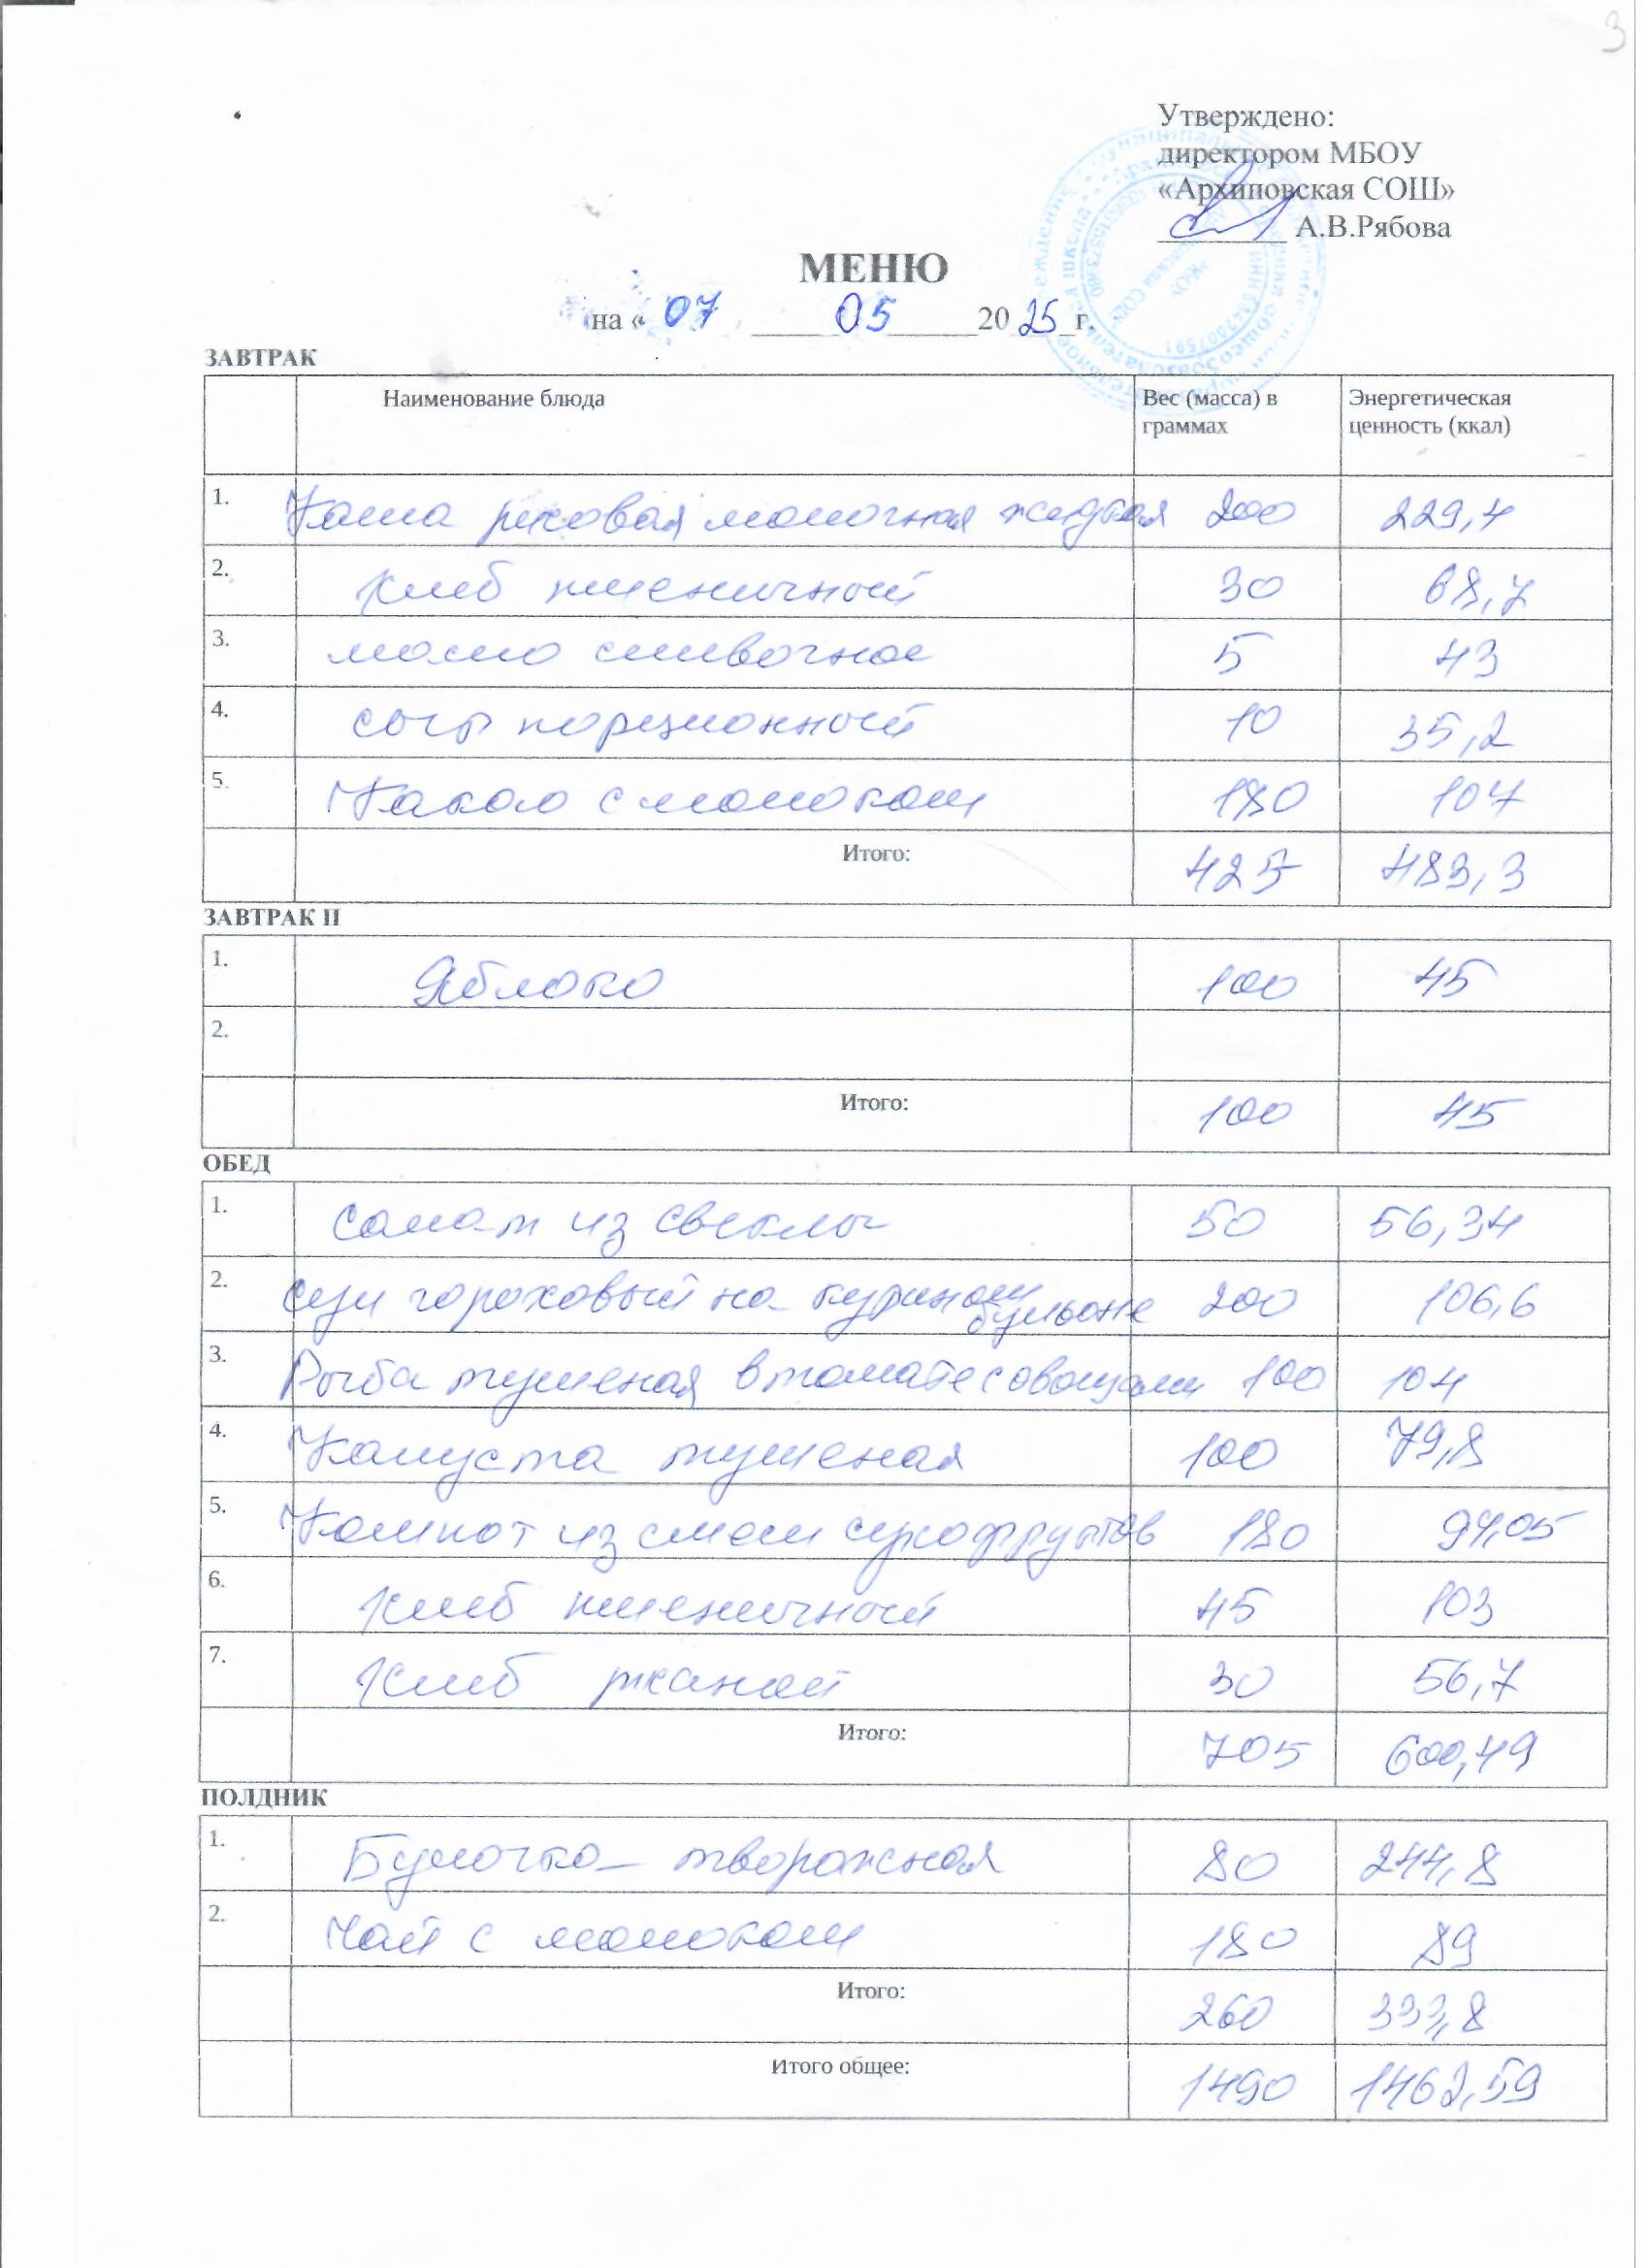 3
Утверждено:
директором МБОУ
«Архиповская СОШ»
А.В.Рябова
МЕНЮ
на « 07 05 20 25 г.
ЗАВТРАК
Наименование блюда Вес (масса) в граммах Энергетическая ценность (ккал)
1. Каша рисовая молочная жидкая 200 229,4
2. Хлеб пшеничный 30 68,7
3. масло сливочное 5 43
4. сыр порционный 10 35,2
5. Какао с молоком 180 107
Итого: 425 483,3
ЗАВТРАК II
1. Яблоко 100 45
2.
Итого: 100 45
ОБЕД
1. салат из свеклы 50 56,34
2. суп гороховый на курином бульоне 200 106,6
3. Рыба тушеная в томате с овощами 100 104
4. Капуста тушеная 100 79,8
5. Компот из смеси сухофруктов 180 94,05
6. Хлеб пшеничный 45 103
7. Хлеб ржаной 30 56,7
Итого: 705 600,49
ПОЛДНИК
1. Булочка творожная 80 244,8
2. Чай с молоком 180 89
Итого: 260 333,8
Итого общее: 1490 1462,59